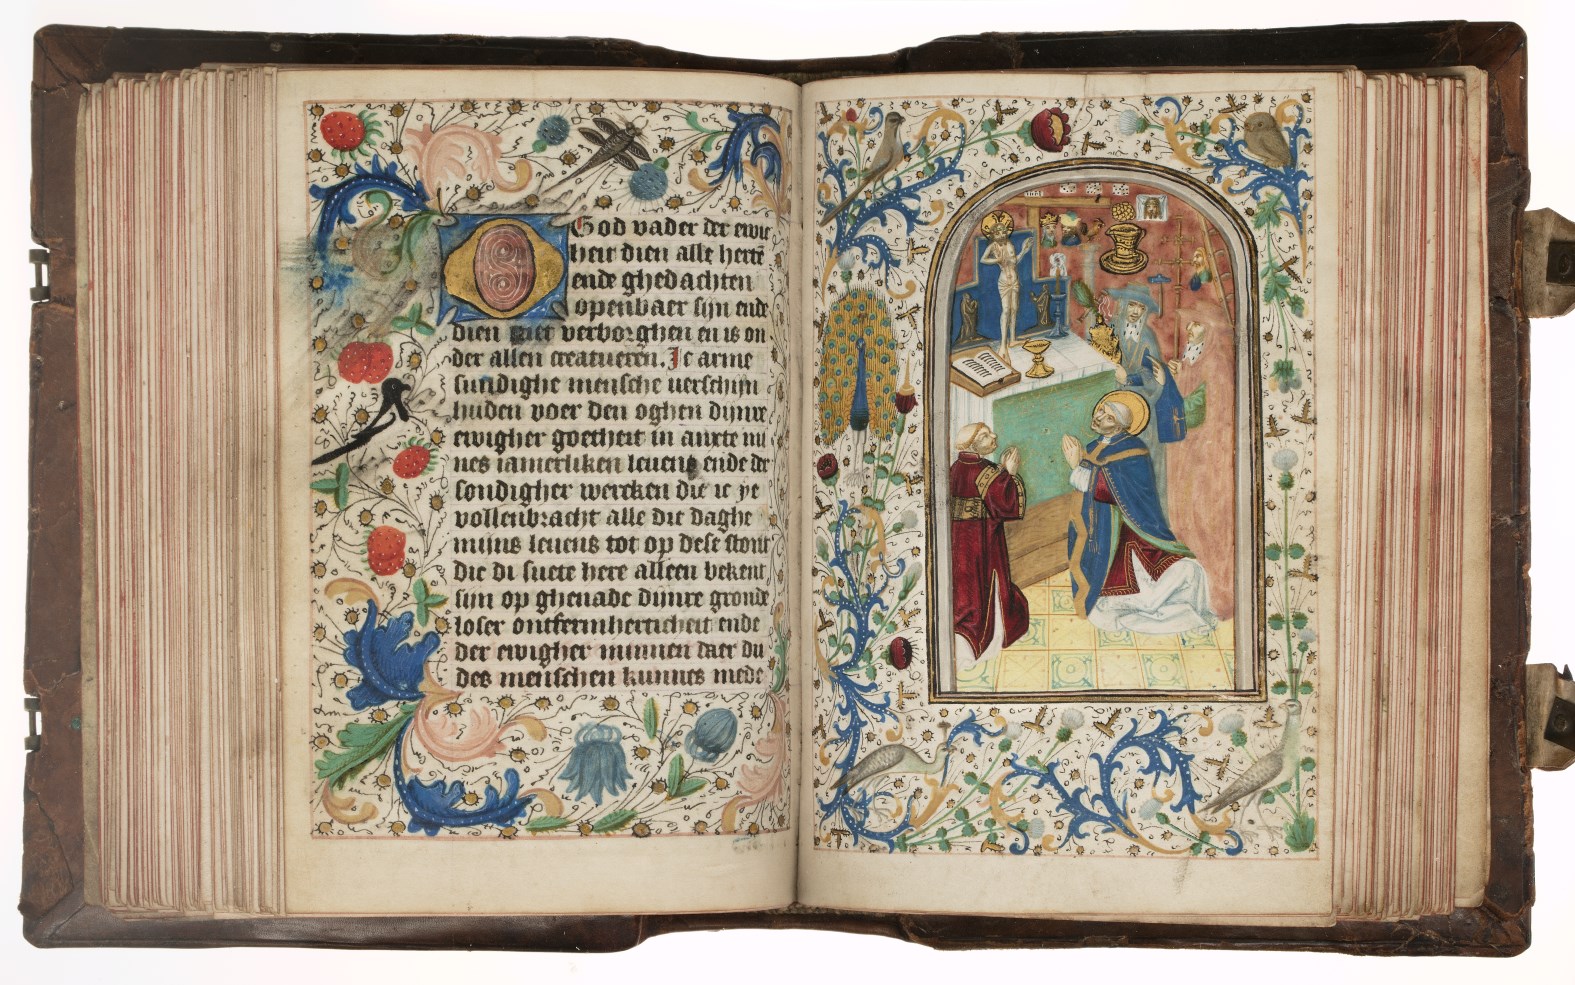 O God vader der ewic
heit dien alle hertē
ende ghedachten
openbaer sijn ende
dien niet verborghen en is on
der allen creatueren. Ic arme
sundighe mensche verschijn
huden voer den oghen dijnre
ewigher goetheit in ancte mi
nes iamerliken leuens ende der
sondigher wercken die ic ye
vollenbracht alle die daghe
mijns leuens tot op dese stont
die di suete here alleen bekent
sijn op ghenade dijnre gronde
loser ontfermherticheit ende
der ewigher minnen daer du
des menschen kunnes mede